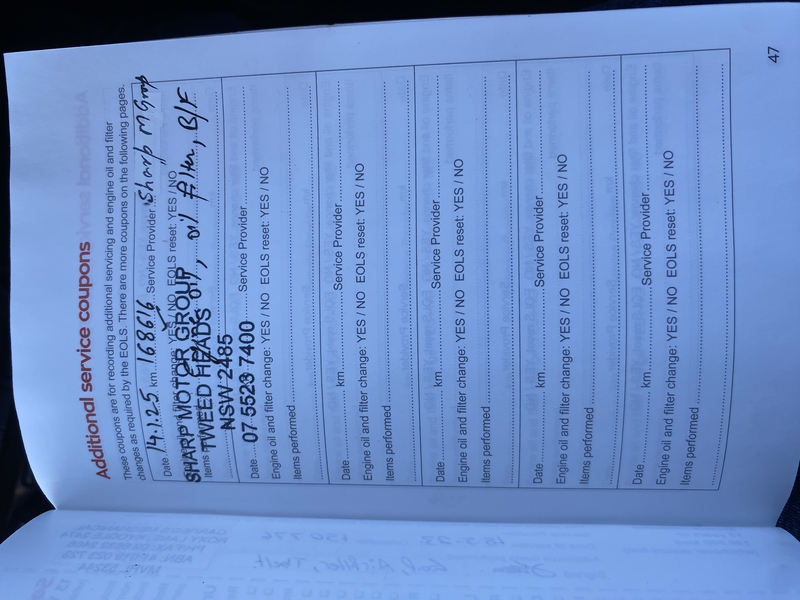 Additional service coupons
These coupons are for recording additional servicing and engine oil and filter
changes as required by the EOLS. There are more coupons on the following pages.
Date 14.1.25 km 168616 Service Provider Sharp M Group
Engine oil and filter change: YES / NO EOLS reset: YES / NO
Items performed oil, oil filter, B/F
SHARP MOTOR GROUP
TWEED HEADS
NSW 2485
07 5523 7400
Date Service Provider
Engine oil and filter change: YES / NO EOLS reset: YES / NO
Items performed
Date km Service Provider
Engine oil and filter change: YES / NO EOLS reset: YES / NO
Items performed
Date km Service Provider
Engine oil and filter change: YES / NO EOLS reset: YES / NO
Items performed
Date km Service Provider
Engine oil and filter change: YES / NO EOLS reset: YES / NO
Items performed
Date km Service Provider
Engine oil and filter change: YES / NO EOLS reset: YES / NO
Items performed
47